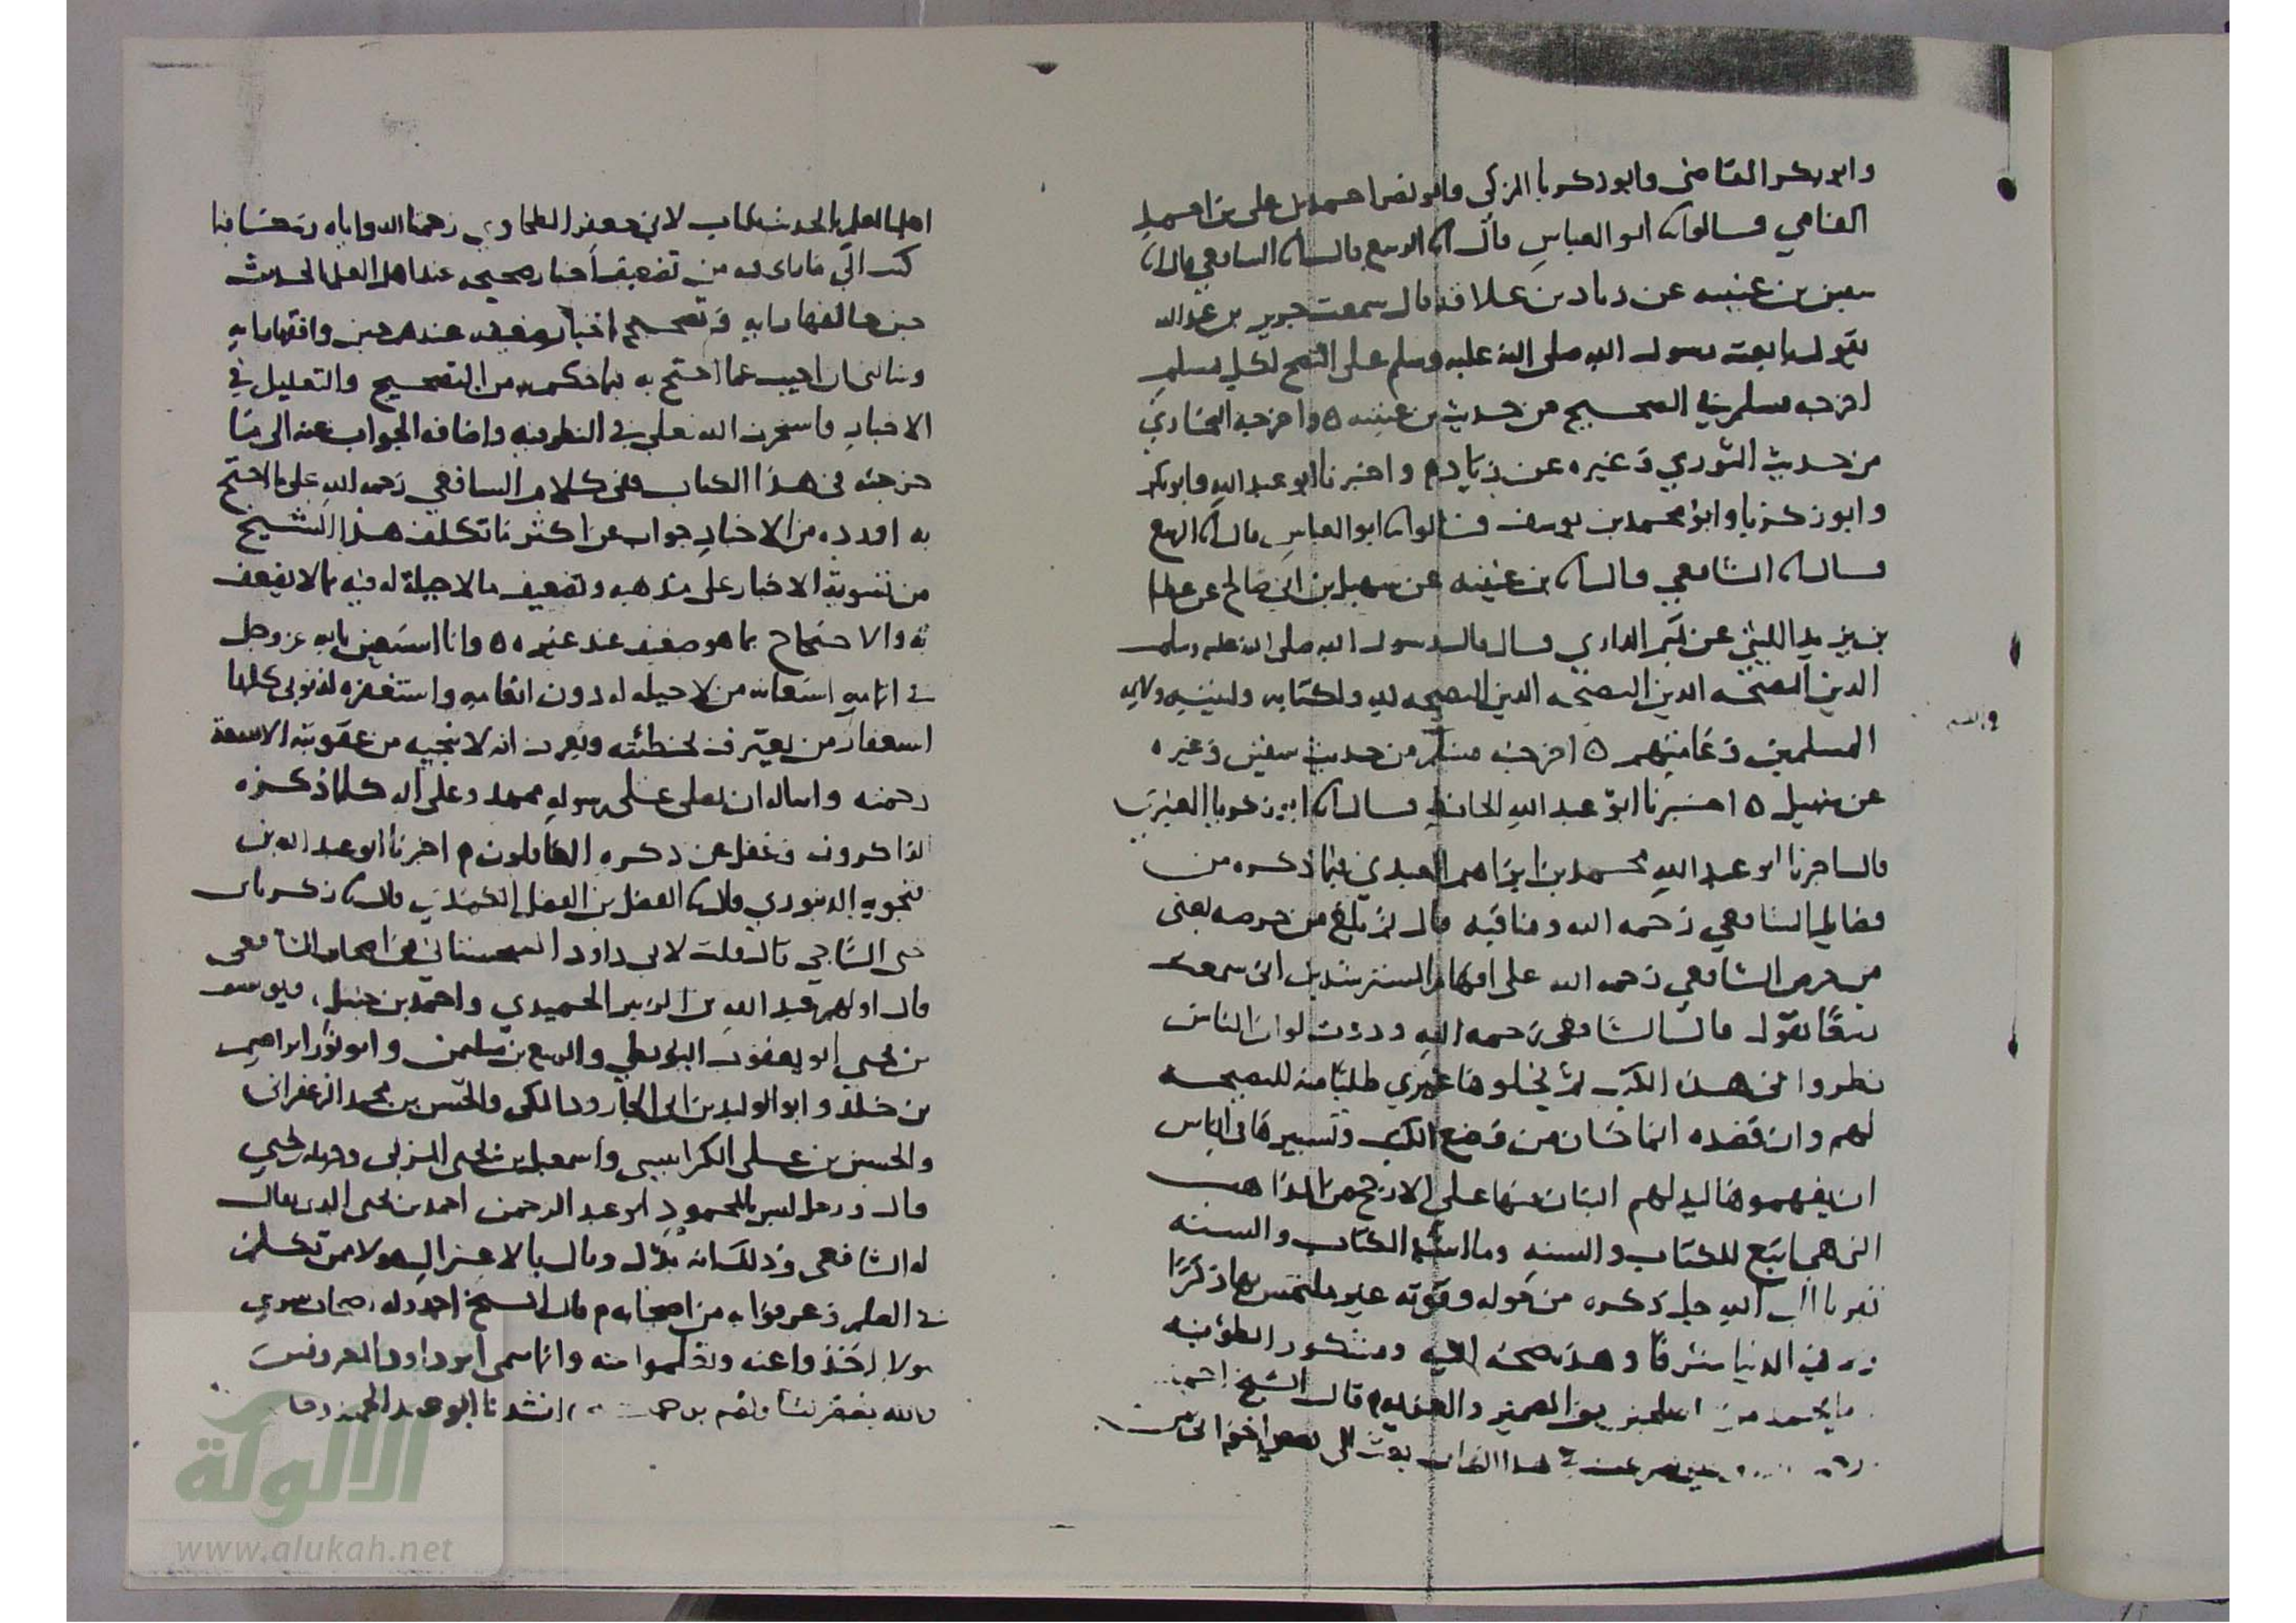 وابو بكر القاضي وابو زكريا المزكي وابو نصر احمد بن علي بن احمد
الفامي قالوا نا ابو العباس قال انا الربيع قال انا الشافعي قال انا
سفين بن عيينه عن زياد بن علاقه قال سمعت جرير بن عبد الله
يقول بايعت رسول الله صلى الله عليه وسلم على النصح لكل مسلم
اخرجه مسلم في الصحيح من حديث بن عيينه ه واخرجه البخاري
من حديث الثوري وغيره عن زياد م واخبرنا ابو عبد الله وابو بكر
وابو زكريا وابو محمد بن يوسف قالوا نا ابو العباس قال انا الربيع
قال انا الشافعي قال انا بن عيينه عن سهيل بن ابي صالح عن عطا
بن يزيد الليثي عن تميم الداري قال قال رسول الله صلى الله عليه وسلم
الدين النصيحه الدين النصيحه الدين النصيحه لله ولكتابه ولنبيه ولايمه
المسلمين وعامتهم ه اخرجه مسلم من حديث سفين وغيره
عن سهيل ه اخبرنا ابو عبد الله الحافظ قال انا ابو زكريا العنبري
قال اخبرنا ابو عبد الله محمد بن ابراهيم العبدي فيما ذكره من
فضايل الشافعي رحمه الله ومناقبه قال لم بلغ من حرصه يعني
من حرص الشافعي رحمه الله على افهام المسترشدين انى سمعت
ربيعًا يقول قال الشافعي رحمه الله وددت لو ان الناس
نظروا في هذه الكتب ثم نحلوها غيري طلبًا منه للنصيحه
لهم وان قصده انما كان من وضع الكتب وتسييرها في الناس
ان يفهموها ليدلهم البيان منها على الارجح من المذاهب
التي هي اتبع للكتاب والسنه وما اشبه الكتاب والسنه
تبريا الى الله جل ذكره من حوله وقوته غير ملتمس بها ذكرًا
ولا في الدنيا شرفًا وهذه صحه النيه ومشكور الطويه
ما يحمد من العلمين يوز الضمير قال الشيخ احمد
وحين شرعت في هذا الكتاب بعث الي بعض اخواني من
اهل العلم بالحديث بكتاب لابي جعفر الطحاوي رحمنا الله واياه وشكا فيما
كتب الي ما راى فيه من تضعيف اخبار صحيحه عند اهل العلم بالحديث
حين خالفها رايه وتصحيح اخبار ضعيفه عندهم حين وافقها رايه
وسالني ان اجيب عما احتج به فيما حكم به من التصحيح والتعليل في
الاخبار فاستخرت الله تعلى في النظر فيه واضافه الجواب عنه الى ما
خرجته في هذا الكتاب ففي كلام الشافعي رحمه الله على ما احتج
به او رده من الاخبار جواب عن اكثر ما تكلف هذا الشيخ
من تسوية الاخبار على مذهبه وتضعيف ما لا حيلة له فيه بما لا يضعف
به والاحتجاج بما هو ضعيف عند غيره ه وانا استعين بالله عز وجل
في اتمامه استعانه من لا حيله له دون انعامه واستغفره لذنوبي كلها
استغفار من يعترف بخطيئته ويعرف انه لا ينجيه من عقوبته الا سعة
رحمته واساله ان يصلي على رسوله محمد وعلى اله كلما ذكره
الذاكرون وغفل عن ذكره الغافلون م اخبرنا ابو عبد الله بن
فنجويه الدينوري قال نا الفضل بن الفضل الكندي قال نا زكريا بن
يحيى الساجي قال قلت لابي داود السجستاني من اصحاب الشافعي
قال اولهم عبد الله بن الزبير الحميدي واحمد بن حنبل ويوسف
بن يحيى ابو يعقوب البويطي والربيع بن سليمن وابو ثور ابراهيم
بن خلد وابو الوليد بن ابي الجارود المكي والحسن بن محمد الزعفراني
والحسين بن علي الكرابيسي واسمعيل بن يحيى المزني وحرمله بن يحيى
قال ورجل ليس بالمحمود ابو عبد الرحمن احمد بن يحيى الذي يقال
له الشافعي وذلك انه بدّل وقال بالاعتزال هولا ممن تكلم
في العلم وعرفوا به من اصحابه م قال الشيخ احمد وله اصحاب سوى
هولا اخذوا عنه وتعلموا منه وانما سمى ابو داود المعروفين
انشدنا ابو عبد الرحمن
والله
الألوكة
www.alukah.net